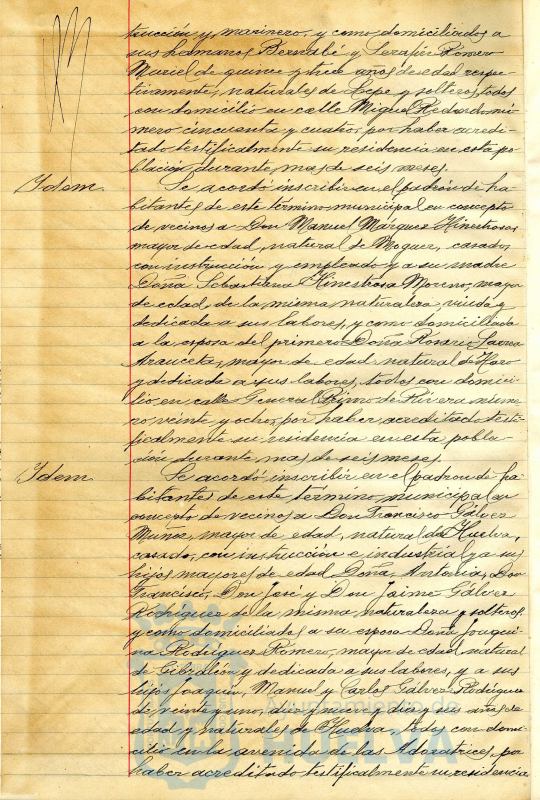 trucción y, marinero, y como domiciliados a
sus hermanos Bernabé y Serafín Romero
Muriel de quince y trece años de edad respec-
tivamente, naturales de Lepe y solteros, todos
con domicilio en calle Miguel Redondo nú-
mero cincuenta y cuatro, por haber acredi-
tado testificalmente su residencia en esta po-
blación durante mas de seis meses.
Idem. Se acordó inscribir en el padrón de ha-
bitantes de este término municipal en concepto
de vecinos a Don Manuel Márquez Hinestrosa
mayor de edad, natural de Moguer, casado,
con instrucción y empleado y a su madre
Doña Sebastiana Hinestrosa Moreno, mayor
de edad, de la misma naturaleza, viuda y
dedicada a sus labores, y como domiciliada
a la esposa del primero Doña Rosario
mayor de edad natural de Haro
y dedicada a sus labores, todos con domici-
lio en calle General Primo de Rivera núme-
ro veinte y ocho, por haber acreditado testi-
ficalmente su residencia en esta pobla-
ción durante mas de seis meses.
Idem Se acordó inscribir en el padron de ha-
bitantes de este término municipal en
concepto de vecinos a Don Francisco Gálvez
Muñoz, mayor de edad, natural de Huelva,
casado, con instrucción e industrial y a sus
hijos mayores de edad Doña Antonia, Don
Francisco, Don José y Don Jaime Gálvez
Rodríguez de la misma naturaleza y solteros
y como domiciliados a su esposa Doña Joaqui-
na Rodríguez Romero, mayor de edad natural
de Gibraleón y dedicada a sus labores, y a sus
hijos Joaquín, Manuel y Carlos Gálvez Rodríguez
de veinte y uno, diez y nueve y diez y seis años de
edad y naturales de Huelva, todos con domi-
cilio en la avenida de las Adoratrices, por
haber acreditado testificalmente su residencia
Ayuntamiento de
HUELVA